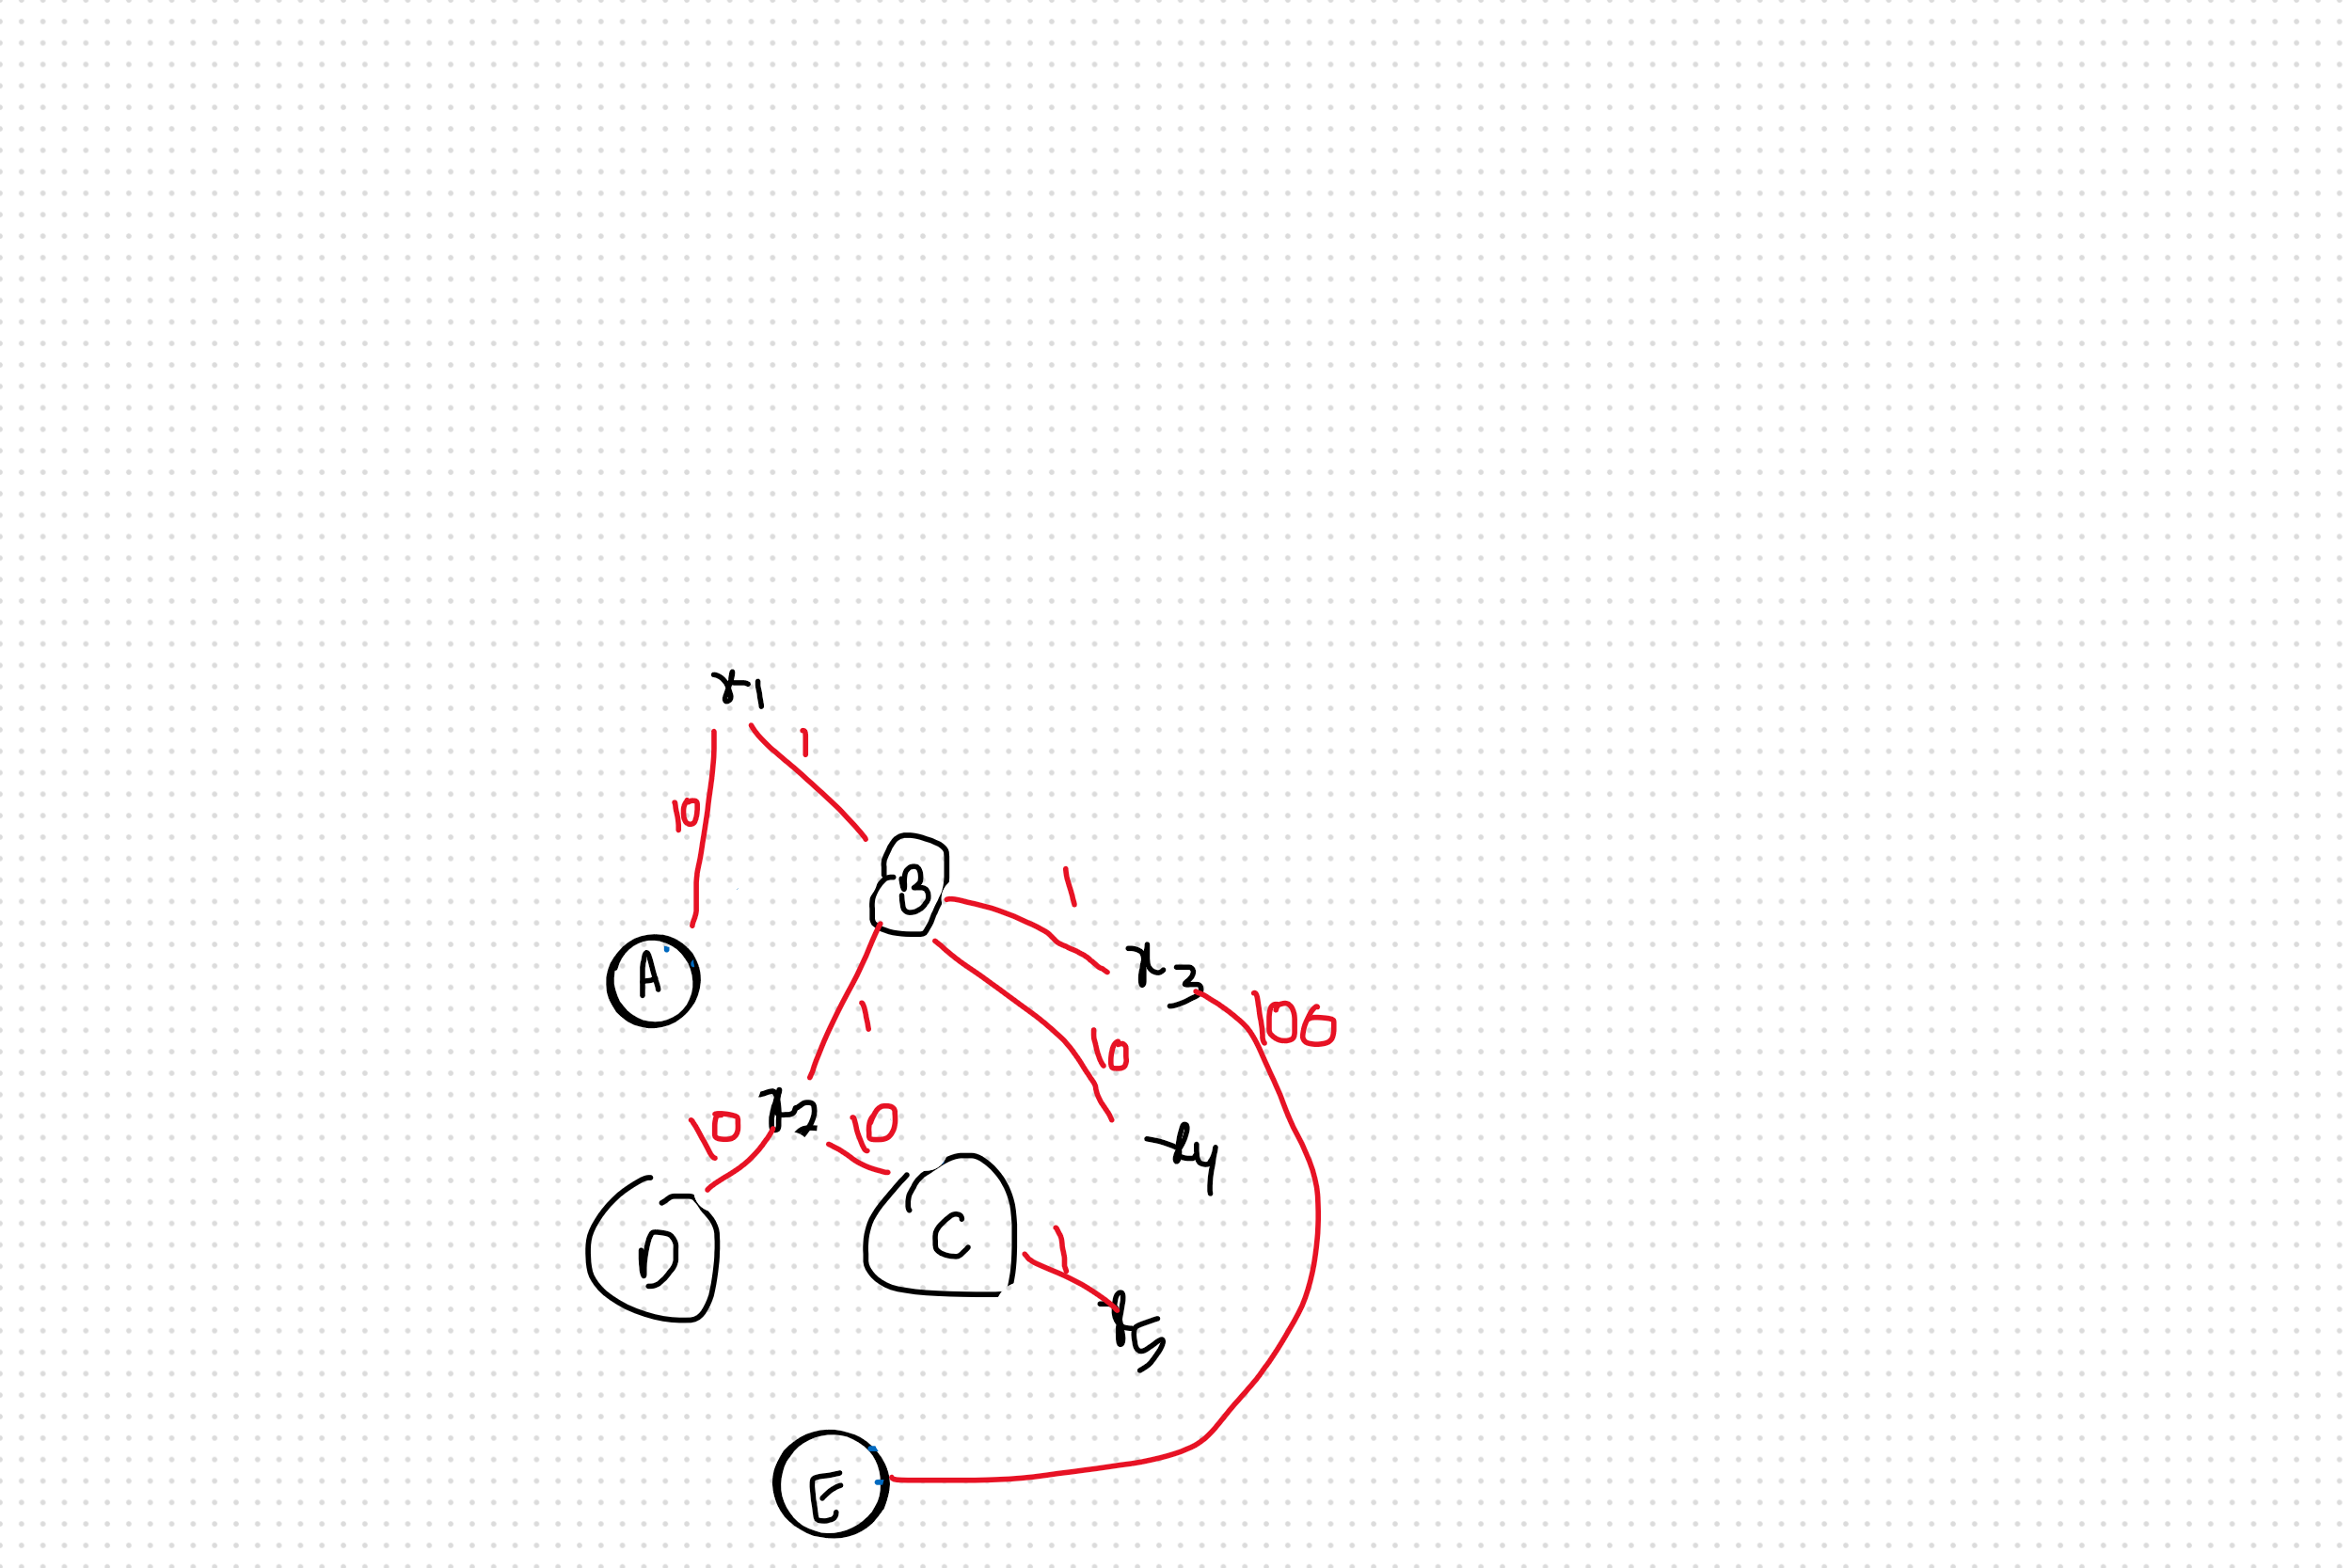 x1
1
10
B
1
A
x3
100
1
10
x2
10
10
x4
D
C
1
x5
E